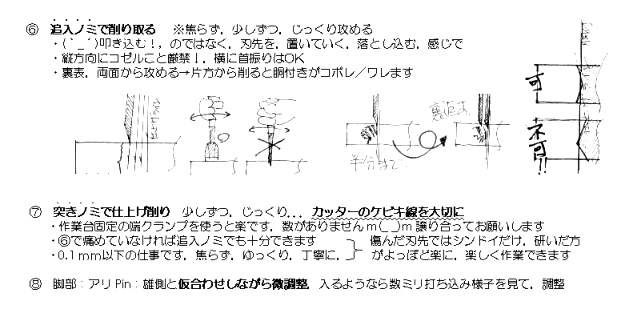 ⑥ 追入ノミで削り取る ※焦らず，少しずつ，じっくり攻める
・(｀_´)叩き込む！，のではなく，刃先を，置いていく，落とし込む，感じで
・縦方向にコゼルこと厳禁！，横に首振りはOK
・裏表，両面から攻める→片方から削ると胴付きがコボレ／ワレます
裏返す
半分まで
可
不可!!
⑦ 突きノミで仕上げ削り 少しずつ，じっくり... カッターのケビキ線を大切に
・作業台固定の端クランプを使うと楽です，数がありませんm(__)m 譲り合ってお願いします
・⑥で痛めていなければ追入ノミでも十分できます
・0.1mm以下の仕事です，焦らず，ゆっくり，丁寧に，
傷んだ刃先ではシンドイだけ，研いだ方
がよっぽど楽に，楽しく作業できます
⑧ 脚部：アリPin：雄側と仮合わせしながら微調整，入るようなら数ミリ打ち込み様子を見て，調整